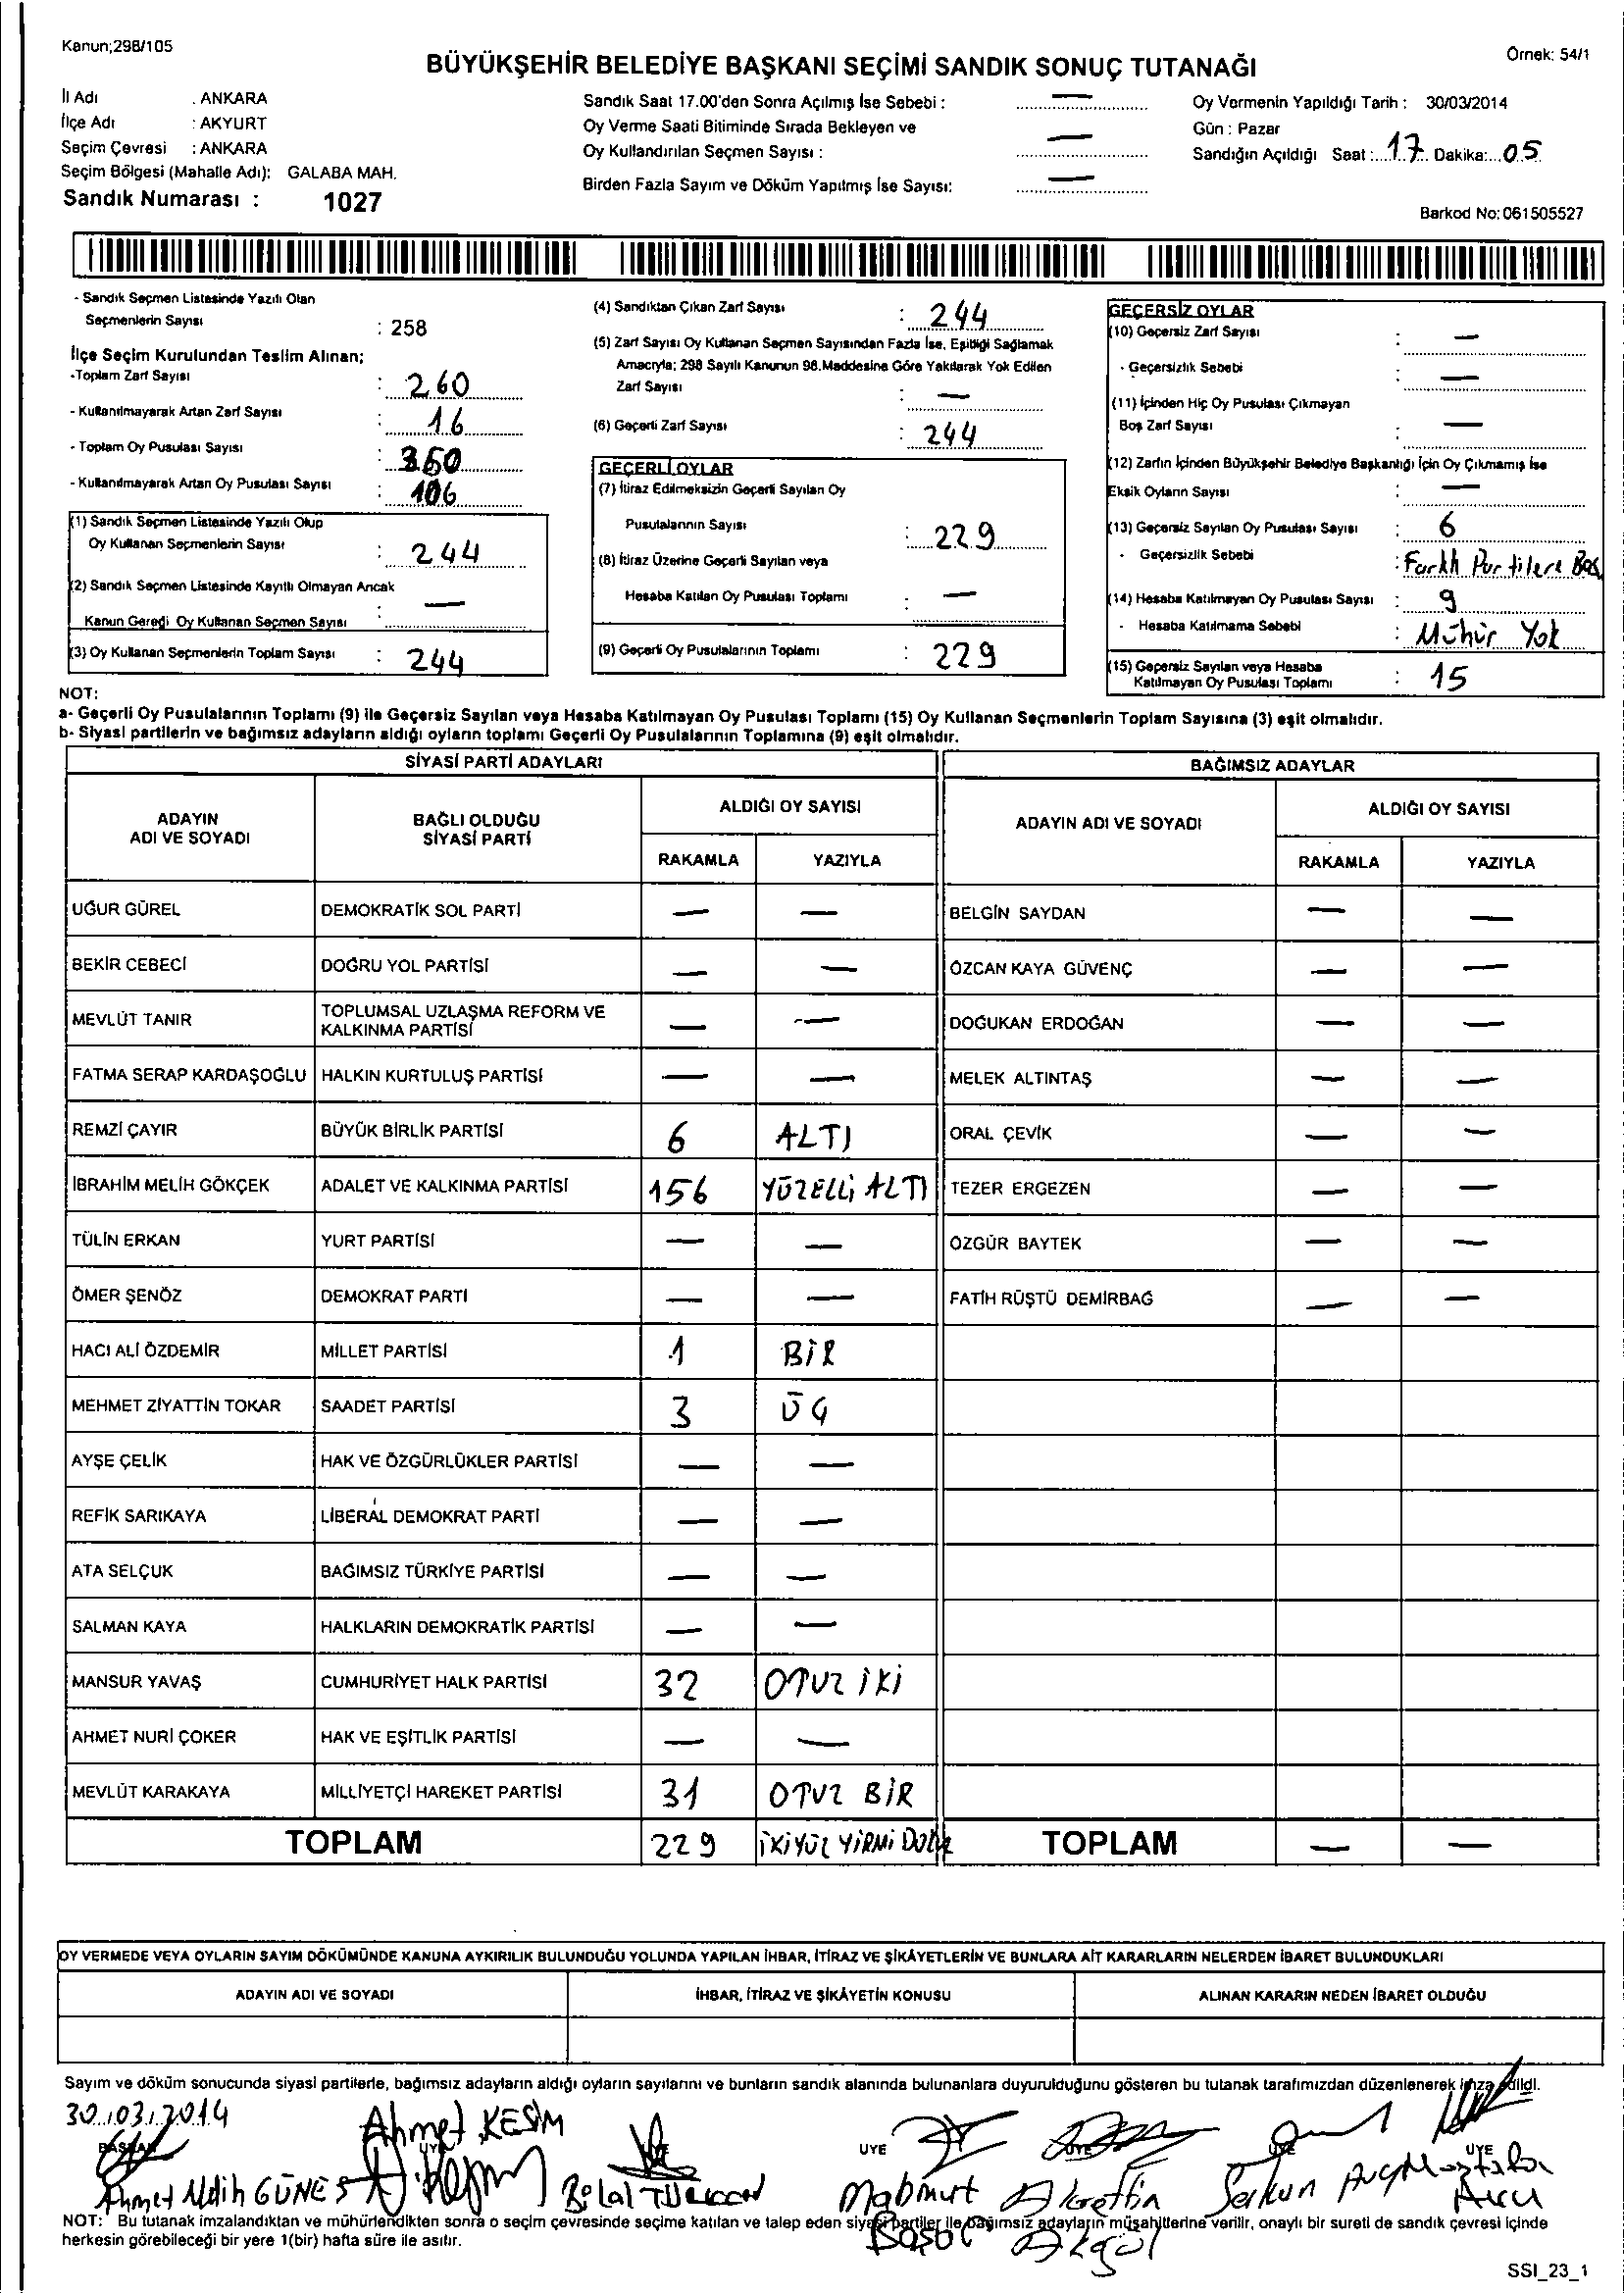 Kanun;298/105
Örnek: 54/1
BÜYÜKŞEHİR BELEDİYE BAŞKANI SEÇİMİ SANDIK SONUÇ TUTANAĞI
İl Adı : ANKARA
İlçe Adı : AKYURT
Seçim Çevresi : ANKARA
Seçim Bölgesi (Mahalle Adı): GALABA MAH.
Sandık Numarası : 1027
Sandık Saat 17.00'den Sonra Açılmış İse Sebebi : —
Oy Verme Saati Bitiminde Sırada Bekleyen ve
Oy Kullandırılan Seçmen Sayısı : —
Birden Fazla Sayım ve Döküm Yapılmış İse Sayısı: —
Oy Vermenin Yapıldığı Tarih : 30/03/2014
Gün : Pazar
Sandığın Açıldığı Saat : 17 Dakika: 05
Barkod No: 061505527
- Sandık Seçmen Listesinde Yazılı Olan
Seçmenlerin Sayısı : 258
İlçe Seçim Kurulundan Teslim Alınan;
-Toplam Zarf Sayısı : 260
- Kullanılmayarak Artan Zarf Sayısı : 16
- Toplam Oy Pusulası Sayısı : 350
- Kullanılmayarak Artan Oy Pusulası Sayısı : 106
(1) Sandık Seçmen Listesinde Yazılı Olup
Oy Kullanan Seçmenlerin Sayısı : 244
(2) Sandık Seçmen Listesinde Kayıtlı Olmayan Ancak
Kanun Gereği Oy Kullanan Seçmen Sayısı : —
(3) Oy Kullanan Seçmenlerin Toplam Sayısı : 244
(4) Sandıktan Çıkan Zarf Sayısı : 244
(5) Zarf Sayısı Oy Kullanan Seçmen Sayısından Fazla İse, Eşitliği Sağlamak
Amacıyla; 298 Sayılı Kanunun 98.Maddesine Göre Yakılarak Yok Edilen
Zarf Sayısı : —
(6) Geçerli Zarf Sayısı : 244
GEÇERLİ OYLAR
(7) İtiraz Edilmeksizin Geçerli Sayılan Oy
Pusulalarının Sayısı : 229
(8) İtiraz Üzerine Geçerli Sayılan veya
Hesaba Katılan Oy Pusulası Toplamı : —
(9) Geçerli Oy Pusulalarının Toplamı : 229
GEÇERSİZ OYLAR
(10) Geçersiz Zarf Sayısı : —
- Geçersizlik Sebebi : —
(11) İçinden Hiç Oy Pusulası Çıkmayan
Boş Zarf Sayısı : —
(12) Zarfın İçinden Büyükşehir Belediye Başkanlığı İçin Oy Çıkmamış İse
Eksik Oyların Sayısı : —
(13) Geçersiz Sayılan Oy Pusulası Sayısı : 6
- Geçersizlik Sebebi : Farklı Partilere Bas
(14) Hesaba Katılmayan Oy Pusulası Sayısı : 9
- Hesaba Katılmama Sebebi : Mühür Yok
(15) Geçersiz Sayılan veya Hesaba
Katılmayan Oy Pusulası Toplamı : 15
NOT:
a- Geçerli Oy Pusulalarının Toplamı (9) ile Geçersiz Sayılan veya Hesaba Katılmayan Oy Pusulası Toplamı (15) Oy Kullanan Seçmenlerin Toplam Sayısına (3) eşit olmalıdır.
b- Siyasi partilerin ve bağımsız adayların aldığı oyların toplamı Geçerli Oy Pusulalarının Toplamına (9) eşit olmalıdır.
SİYASİ PARTİ ADAYLARI
BAĞIMSIZ ADAYLAR
ADAYIN ADI VE SOYADI
BAĞLI OLDUĞU SİYASİ PARTİ
ALDIĞI OY SAYISI
RAKAMLA YAZIYLA
ADAYIN ADI VE SOYADI
ALDIĞI OY SAYISI
RAKAMLA YAZIYLA
UĞUR GÜREL DEMOKRATİK SOL PARTİ — — BELGİN SAYDAN — —
BEKİR CEBECİ DOĞRU YOL PARTİSİ — — ÖZCAN KAYA GÜVENÇ — —
MEVLÜT TANIR TOPLUMSAL UZLAŞMA REFORM VE KALKINMA PARTİSİ — — DOĞUKAN ERDOĞAN — —
FATMA SERAP KARDAŞOĞLU HALKIN KURTULUŞ PARTİSİ — — MELEK ALTINTAŞ — —
REMZİ ÇAYIR BÜYÜK BİRLİK PARTİSİ 6 ALTI ORAL ÇEVİK — —
İBRAHİM MELİH GÖKÇEK ADALET VE KALKINMA PARTİSİ 156 YÜZELLİ ALTI TEZER ERGEZEN — —
TÜLİN ERKAN YURT PARTİSİ — — ÖZGÜR BAYTEK — —
ÖMER ŞENÖZ DEMOKRAT PARTİ — — FATİH RÜŞTÜ DEMİRBAĞ — —
HACI ALİ ÖZDEMİR MİLLET PARTİSİ 1 BİR
MEHMET ZİYATTİN TOKAR SAADET PARTİSİ 3 ÜÇ
AYŞE ÇELİK HAK VE ÖZGÜRLÜKLER PARTİSİ — —
REFİK SARIKAYA LİBERAL DEMOKRAT PARTİ — —
ATA SELÇUK BAĞIMSIZ TÜRKİYE PARTİSİ — —
SALMAN KAYA HALKLARIN DEMOKRATİK PARTİSİ — —
MANSUR YAVAŞ CUMHURİYET HALK PARTİSİ 32 OTUZ İKİ
AHMET NURİ ÇOKER HAK VE EŞİTLİK PARTİSİ — —
MEVLÜT KARAKAYA MİLLİYETÇİ HAREKET PARTİSİ 31 OTUZ BİR
TOPLAM 229 İKİYÜZ YİRMİ DOKUZ TOPLAM — —
OY VERMEDE VEYA OYLARIN SAYIM DÖKÜMÜNDE KANUNA AYKIRILIK BULUNDUĞU YOLUNDA YAPILAN İHBAR, İTİRAZ VE ŞİKÂYETLERİN VE BUNLARA AİT KARARLARIN NELERDEN İBARET BULUNDUKLARI
ADAYIN ADI VE SOYADI İHBAR, İTİRAZ VE ŞİKÂYETİN KONUSU ALINAN KARARIN NEDEN İBARET OLDUĞU
Sayım ve döküm sonucunda siyasi partilerle, bağımsız adayların aldığı oyların sayılarını ve bunların sandık alanında bulunanlara duyurulduğunu gösteren bu tutanak tarafımızdan düzenlenerek imza edildi.
30/03/2014
BAŞKAN ÜYE ÜYE ÜYE ÜYE ÜYE ÜYE
Ahmet KESİM
Ahmet Melih GÜNEŞ
Bilal
Mahmut
Serkan Avcı
Mustafa
Avcu
Akgül
NOT: Bu tutanak imzalandıktan ve mühürlendikten sonra o seçim çevresinde seçime katılan ve talep eden siyasi partiler ile bağımsız adayların müşahitlerine verilir, onaylı bir sureti de sandık çevresi içinde
herkesin görebileceği bir yere 1(bir) hafta süre ile asılır.
SSI_23_1